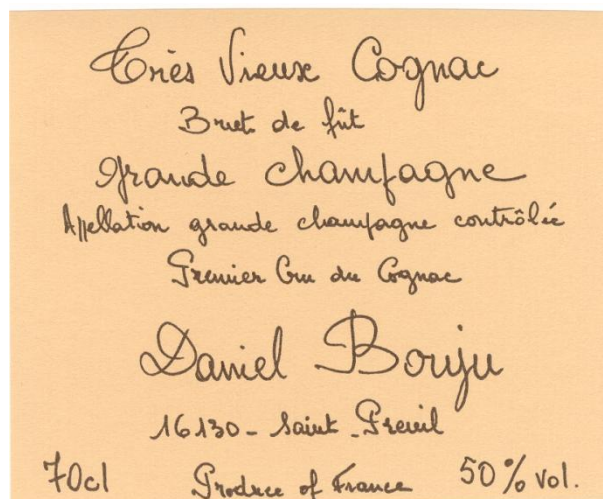 Très Vieux Cognac
Brut de fût
Grande Champagne
Appellation grande champagne contrôlée
Premier Cru du Cognac
Daniel Bouju
16130 - Saint - Preuil
70cl Produce of France 50% vol.